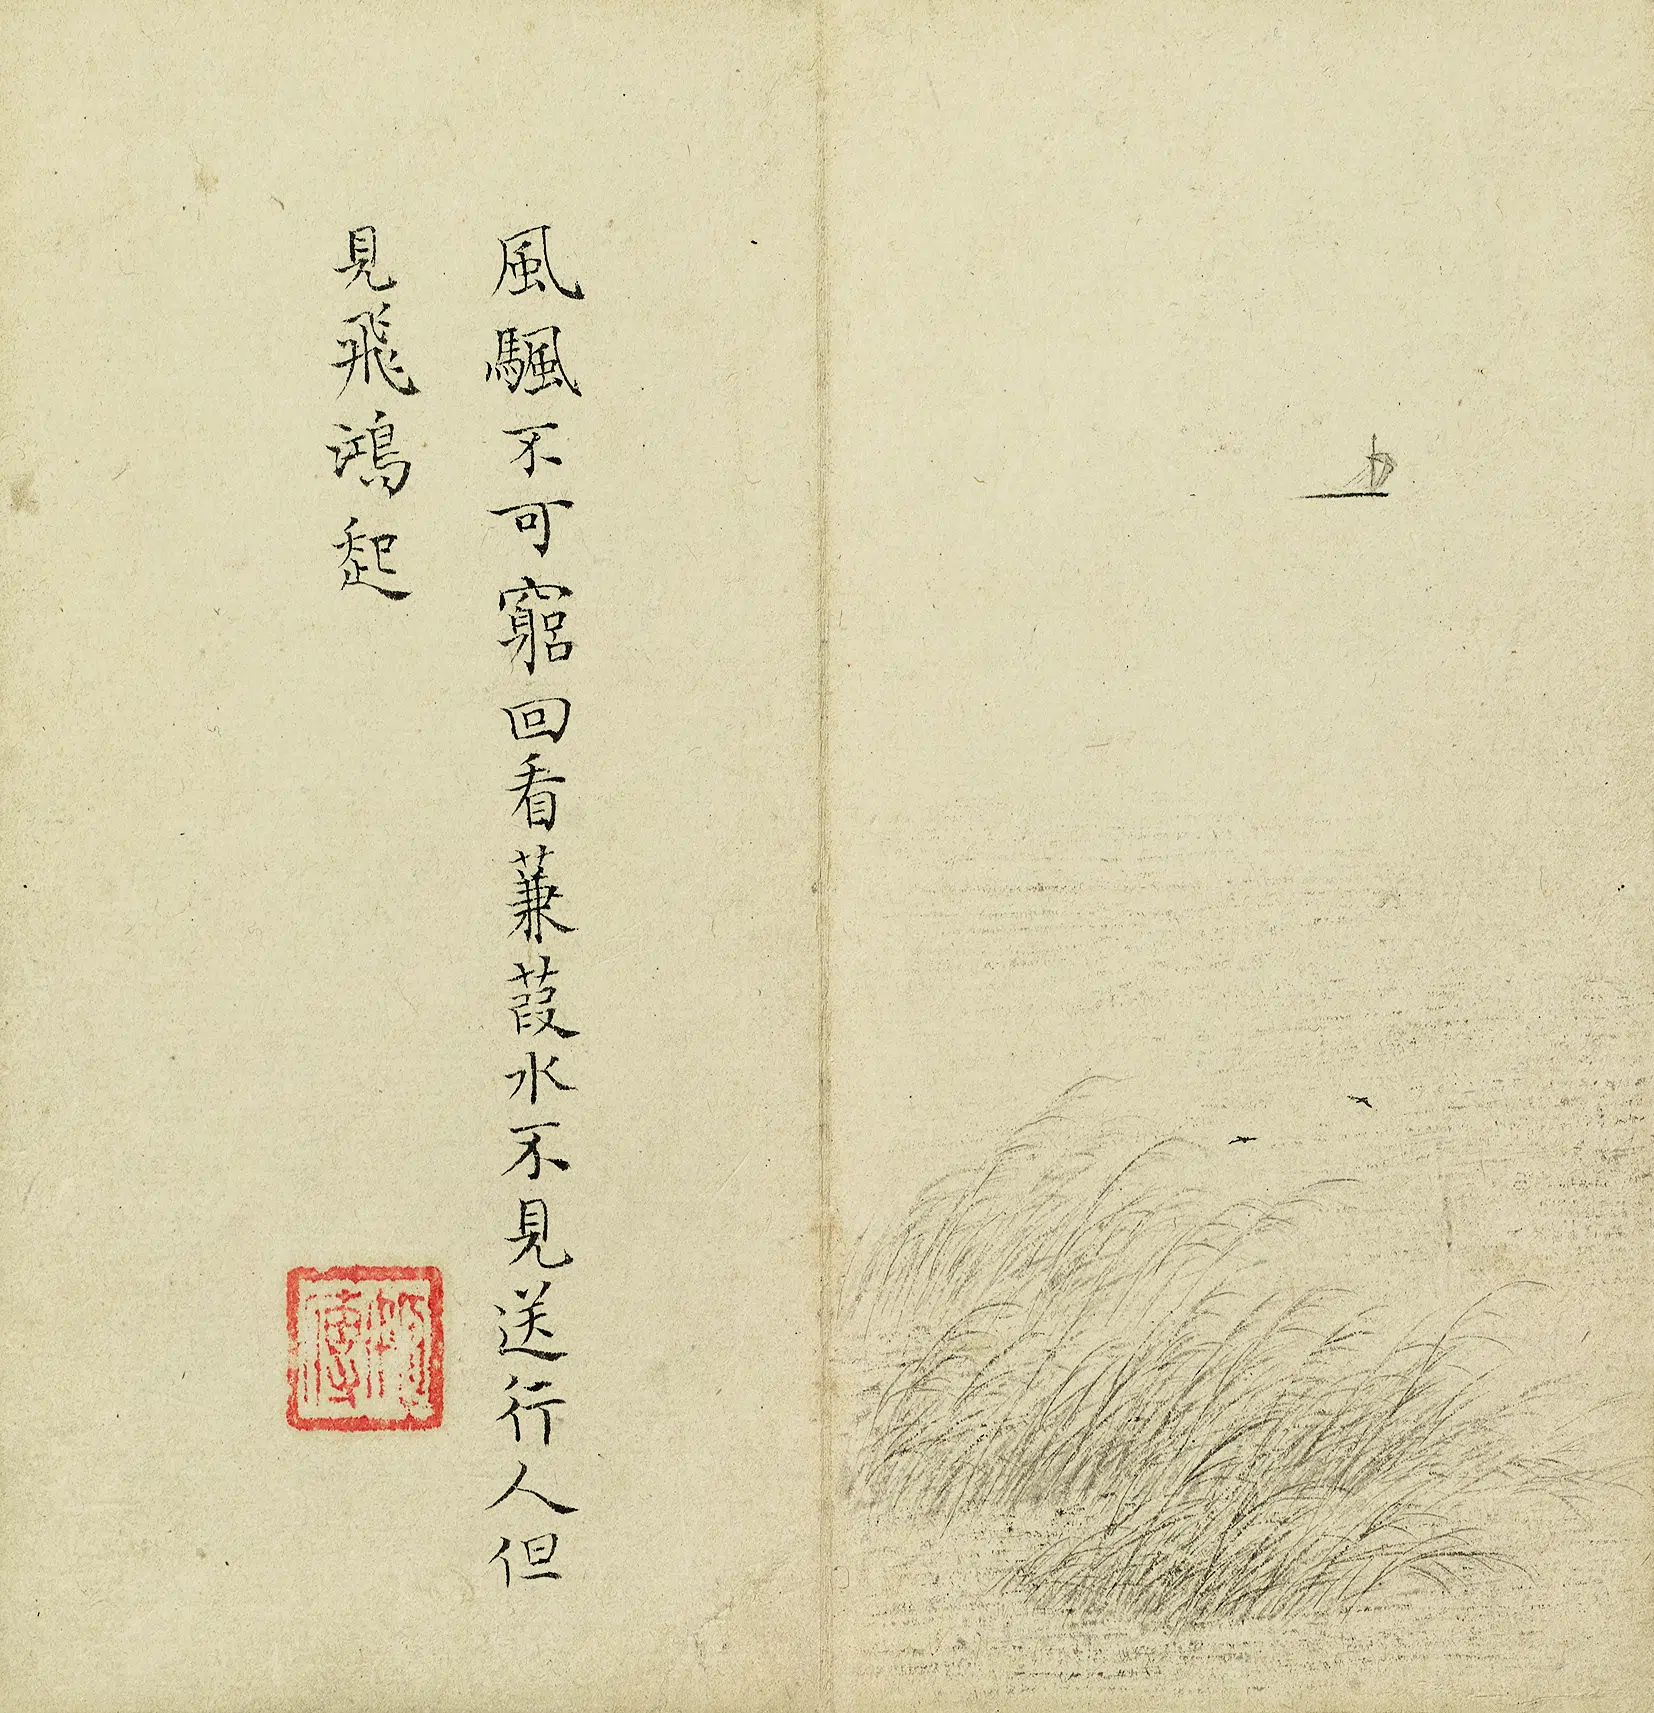 風颿不可窮回看蒹葭水不見送行人但
見飛鴻起